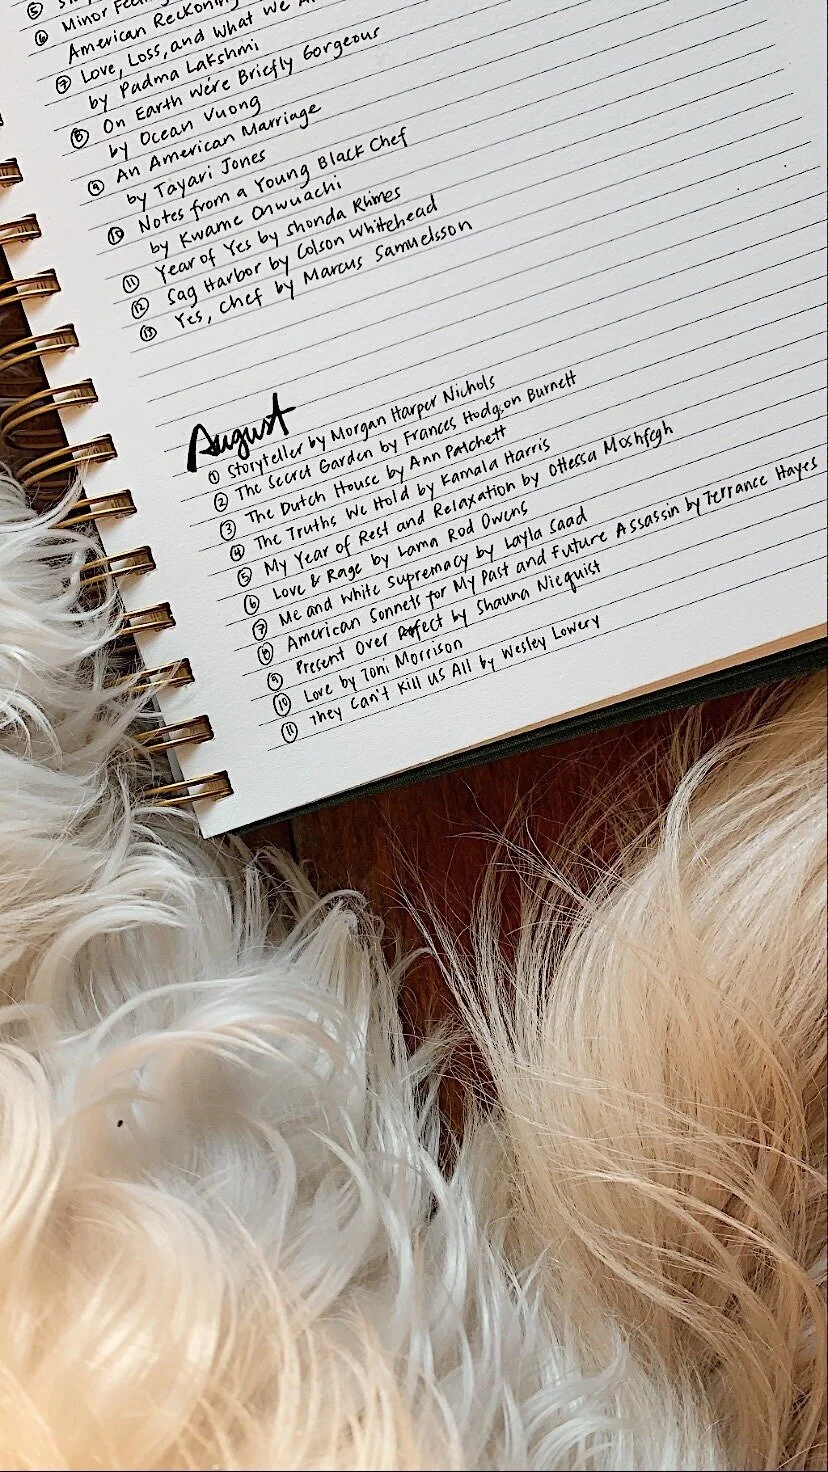 ⑤
⑥ Minor Feelings
American Reckoning
⑦ Love, Loss, and What We
by Padma Lakshmi
⑧ On Earth We're Briefly Gorgeous
by Ocean Vuong
⑨ An American Marriage
by Tayari Jones
⑩ Notes from a Young Black Chef
by Kwame Onwuachi
⑪ Year of Yes by Shonda Rhimes
⑫ Sag Harbor by Colson Whitehead
⑬ Yes, Chef by Marcus Samuelsson
August
① Storyteller by Morgan Harper Nichols
② The Secret Garden by Frances Hodgson Burnett
③ The Dutch House by Ann Patchett
④ The Truths We Hold by Kamala Harris
⑤ My Year of Rest and Relaxation by Ottessa Moshfegh
⑥ Love & Rage by Lama Rod Owens
⑦ Me and White Supremacy by Layla Saad
⑧ American Sonnets for My Past and Future Assassin by Terrance Hayes
⑨ Present Over Perfect by Shauna Niequist
⑩ Love by Toni Morrison
⑪ They Can't Kill Us All by Wesley Lowery